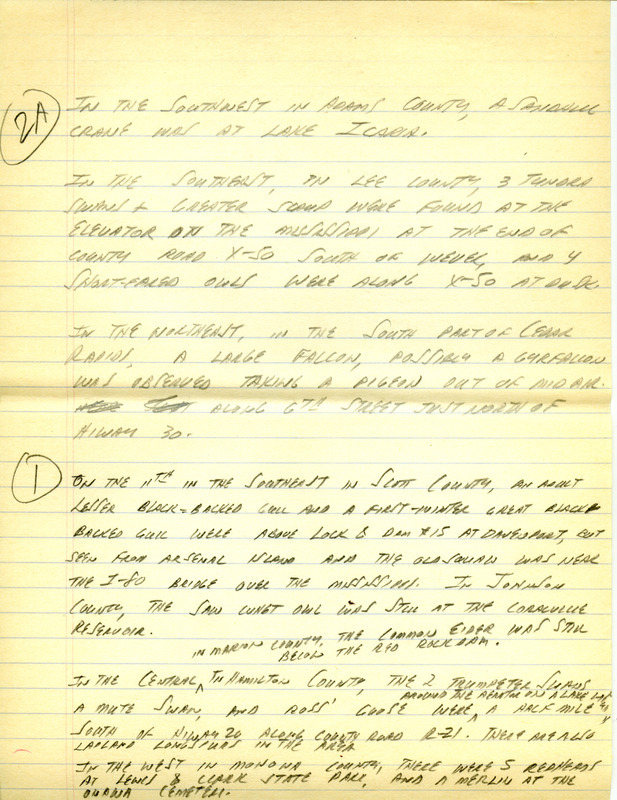 2A
IN THE SOUTHWEST IN ADAMS COUNTY, A SANDHILL
CRANE WAS AT LAKE ICARIA.
IN THE SOUTHEAST, IN LEE COUNTY, 3 TUNDRA
SWANS & GREATER SCAUP WERE FOUND AT THE
ELEVATOR ON THE MISSISSIPPI AT THE END OF
COUNTY ROAD X-50 SOUTH OF WEVER, AND 4
SHORT-EARED OWLS WERE ALONG X-50 AT DUSK.
IN THE NORTHEAST, IN THE SOUTH PART OF CEDAR
RAPIDS, A LARGE FALCON, POSSIBLY A GYRFALCON
WAS OBSERVED TAKING A PIGEON OUT OF MID AIR.
ALONG 6TH STREET JUST NORTH OF
HIWAY 30.
1
ON THE 11TH IN THE SOUTHEAST IN SCOTT COUNTY, AN ADULT
LESSER BLACK-BACKED GULL AND A FIRST-WINTER GREAT BLACK-
BACKED GULL WERE ABOVE LOCK & DAM #15 AT DAVENPORT, BUT
SEEN FROM ARSENAL ISLAND AND THE OLDSQUAW WAS NEAR
THE I-80 BRIDGE OVER THE MISSISSIPPI. IN JOHNSON
COUNTY, THE SAW WHET OWL WAS STILL AT THE CORALVILLE
RESERVOIR.
IN MARION COUNTY, THE COMMON EIDER WAS STILL
BELOW THE RED ROCK DAM.
IN THE CENTRAL, IN HAMILTON COUNTY, THE 2 TRUMPETER SWANS
AROUND THE AERATOR ON A LAKE
A MUTE SWAN, AND ROSS' GOOSE WERE A HALF MILE
SOUTH OF HIWAY 20 ALONG COUNTY ROAD R-21. THERE ARE ALSO
LAPLAND LONGSPURS IN THE AREA
IN THE WEST IN MONONA COUNTY, THERE WERE 5 REDHEADS
AT LEWIS & CLARK STATE PARK, AND A MERLIN AT THE
ONAWA CEMETERY.